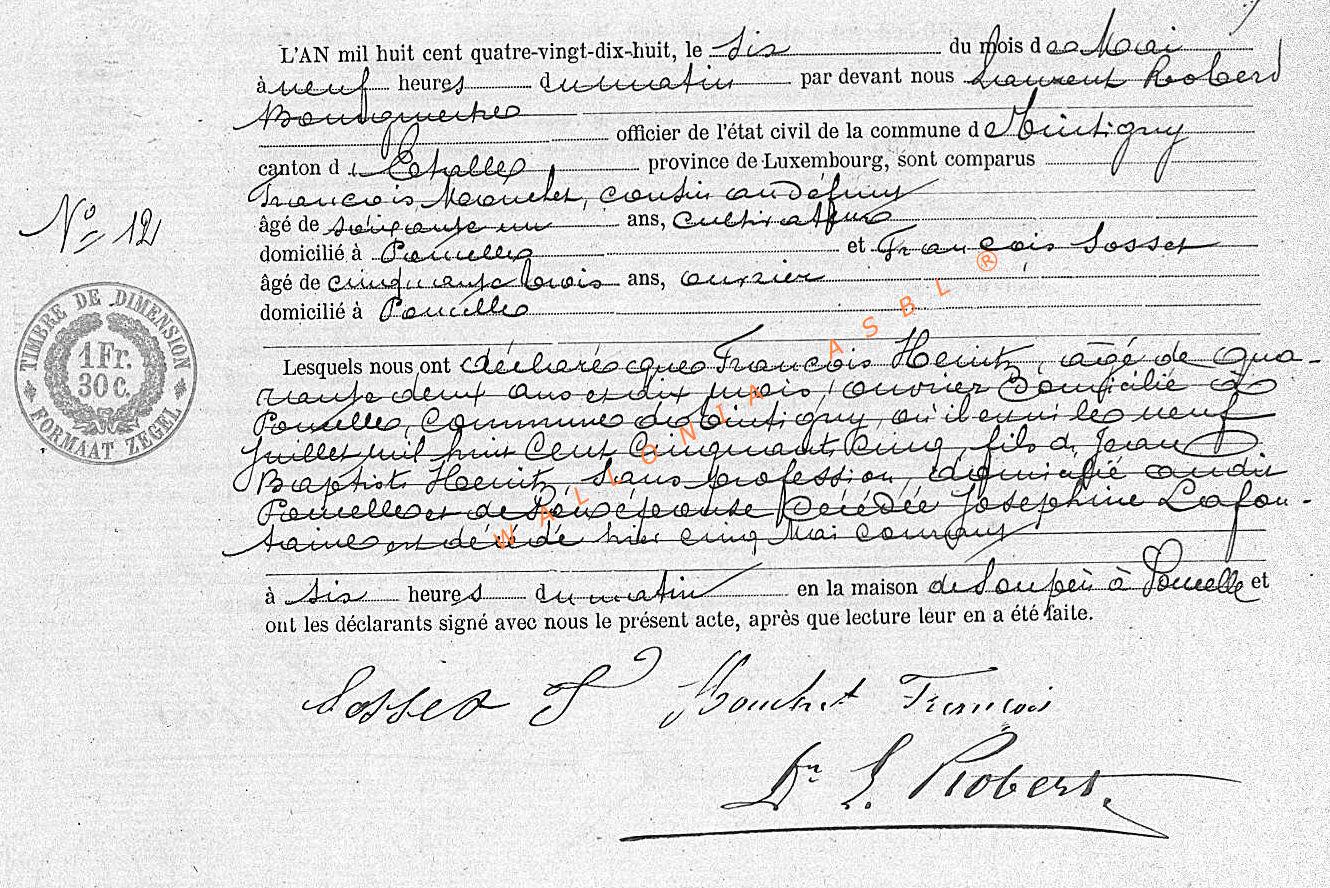 L'AN mil huit cent quatre-vingt-dix-huit, le six du mois de Mai
à neuf heures du matin par devant nous Laurent Robert
Bourgmestre
officier de l'état civil de la commune de Tintigny
canton d'Etalle province de Luxembourg, sont comparus
François Mouchet, cousin au défunt
âgé de soixante un ans, cultivateur
N° 12
domicilié à Poncelle et François Sosset
âgé de cinquante trois ans, ouvrier
domicilié à Poncelle
TIMBRE DE DIMENSION
1 Fr.
30 C.
FORMAAT ZEGEL
Lesquels nous ont déclaré que François Heintz, âgé de qua-
rante deux ans et dix mois, ouvrier domicilié à
Poncelle, commune de Tintigny, où il est né le neuf
juillet mil huit cent cinquante cinq, fils de Jean
Baptiste Heintz, sans profession, domicilié audit
Poncelle et de son épouse décédée Joséphine Lafon-
taine est décédé hier cinq Mai courant
à six heures du matin en la maison de son père à Poncelle et
ont les déclarants signé avec nous le présent acte, après que lecture leur en a été faite.
Sosset F Mouchet François
Dr L. Robert.
WALLONIA ASBL ®